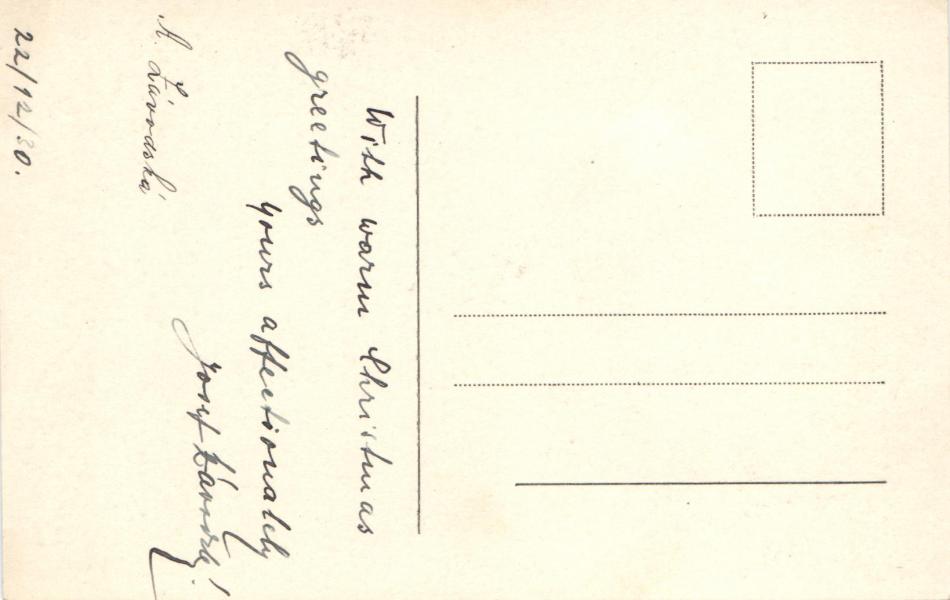 With warm Christmas
greetings
yours affectionately
Josef Závodský
A. Závodská
22/12/30.